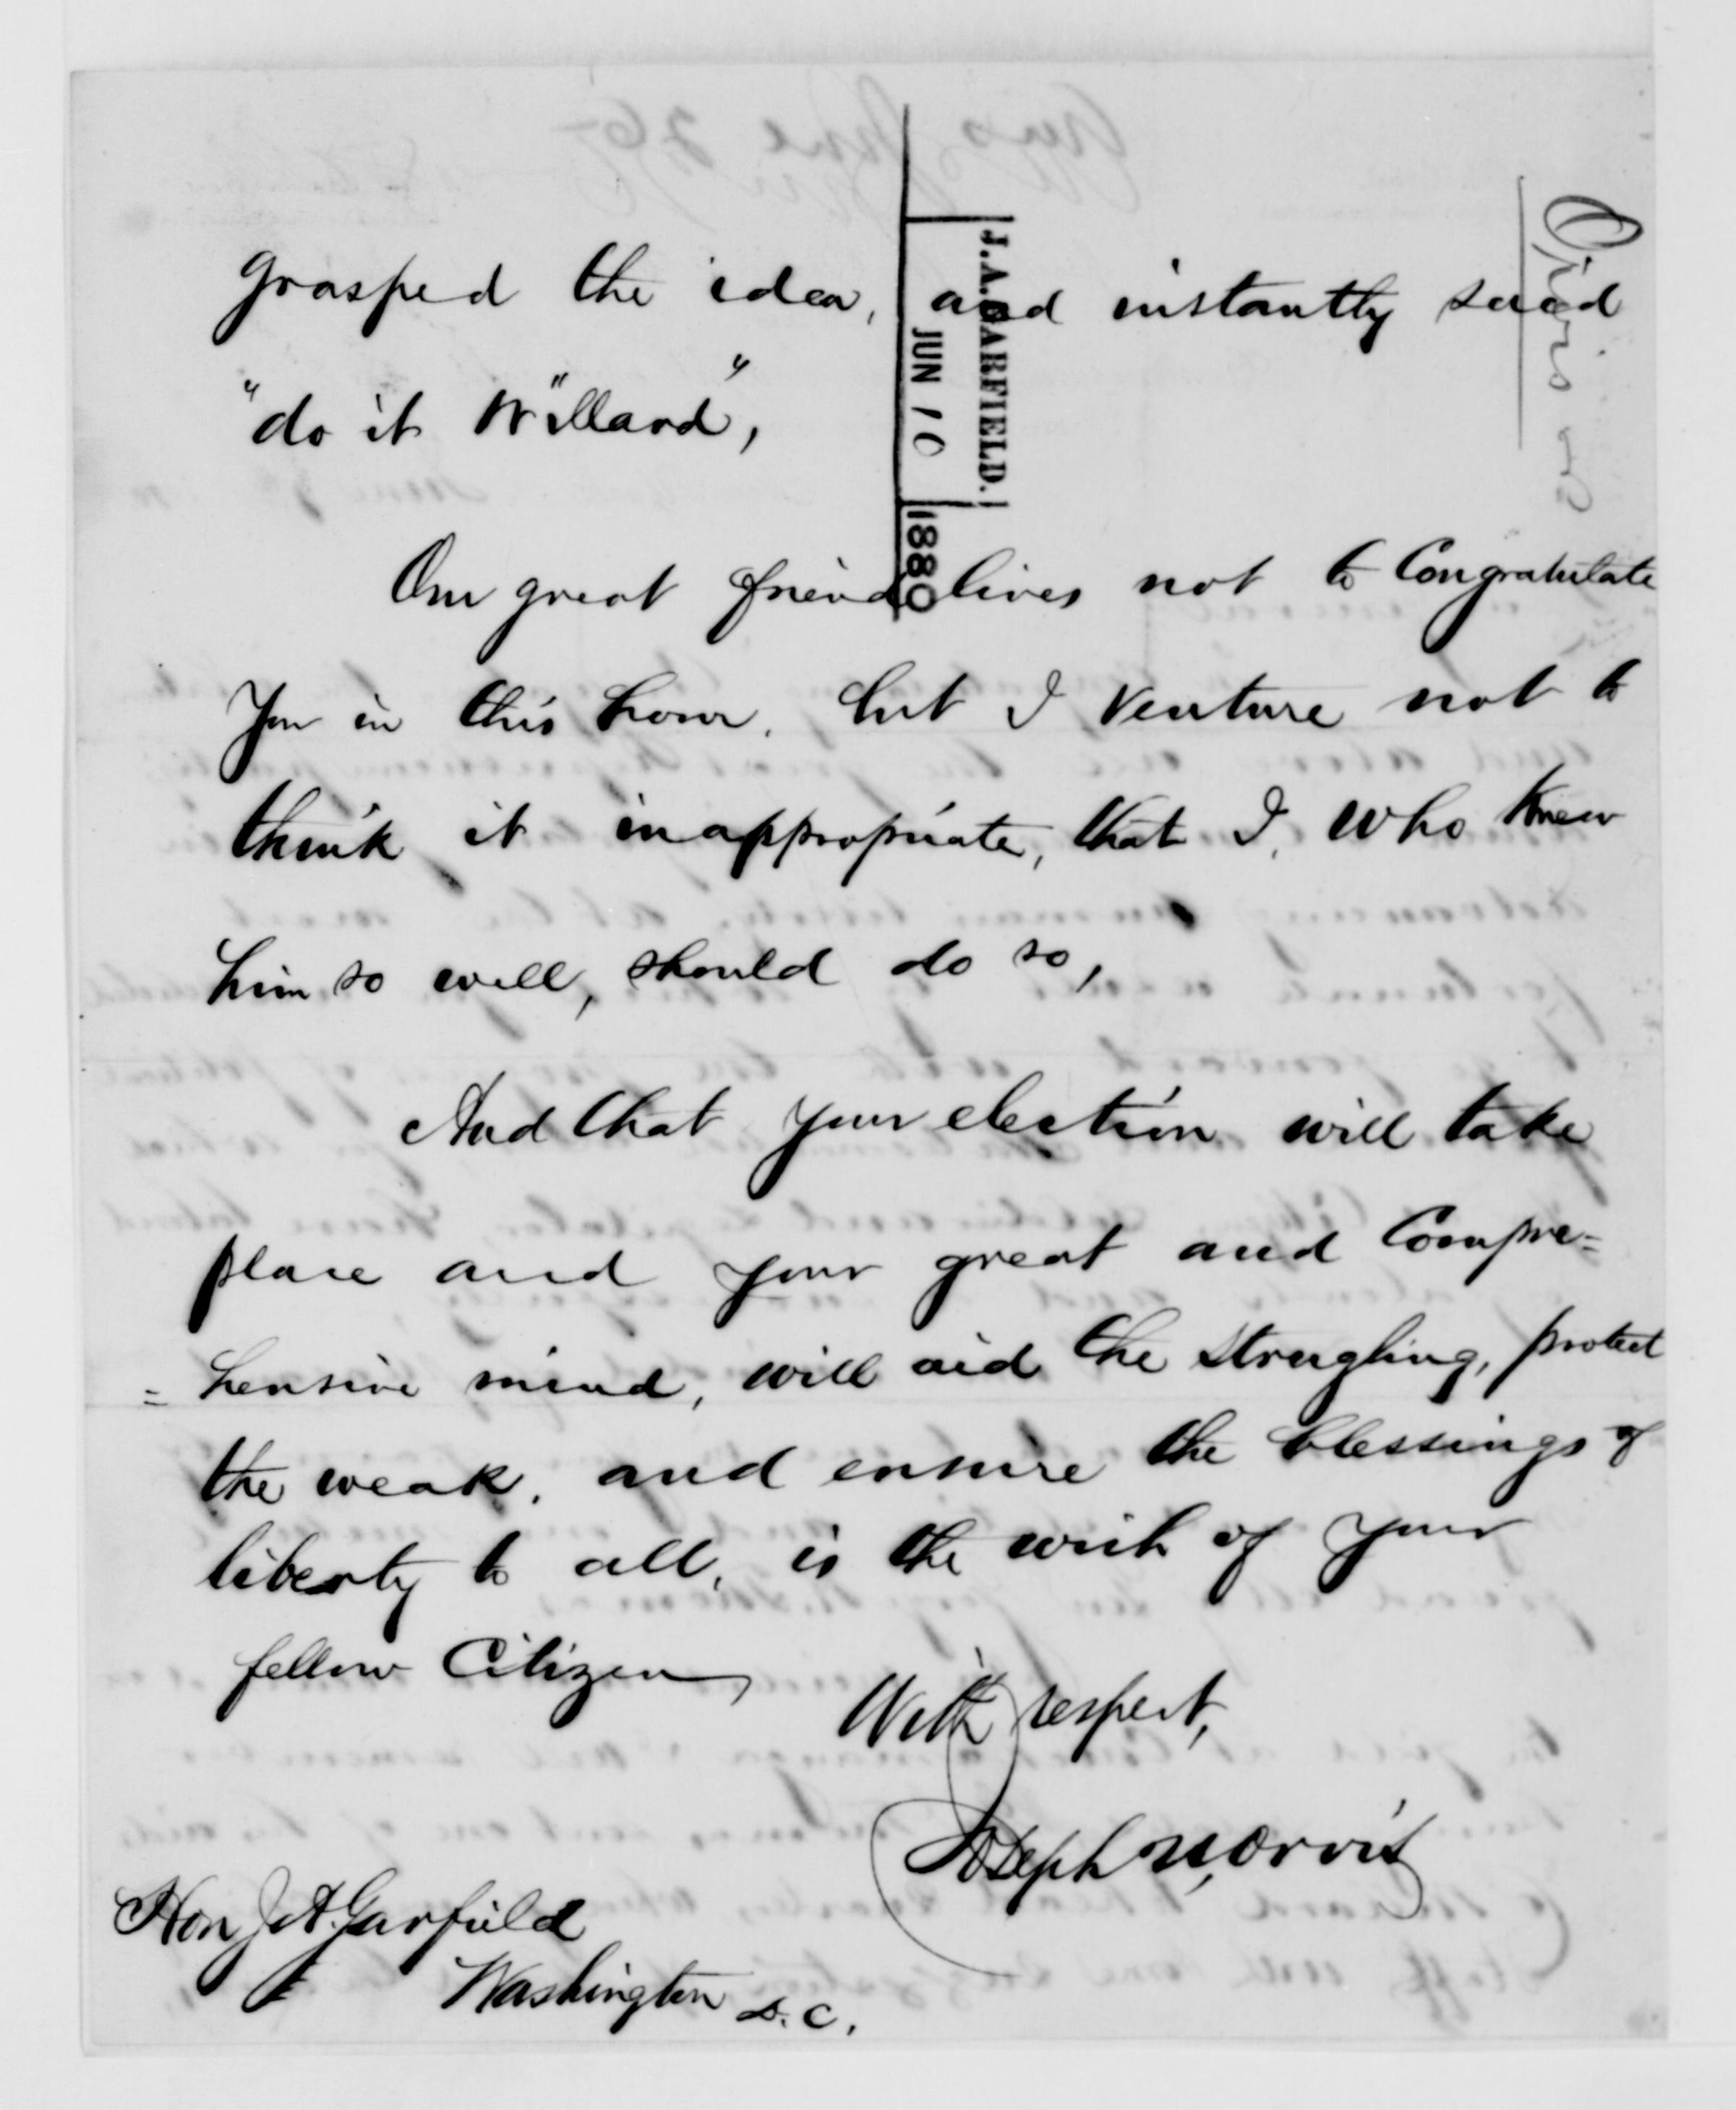 grasped the idea, and instantly said
"do it Willard",
Our great friend lives not to Congratulate
You in this hour, but I venture not to
think it inappropriate, that I, who knew
him so well, should do so,
And that your election will take
place and your great and Compre=
=hensive mind, will aid the strugling, protect
the weak, and ensure the blessings of
liberty to all, is the wish of your
fellow Citizen,
With respect,
Joseph
Hon J. A. Garfield
Washington D. C.
J. A. GARFIELD.
JUN 10
1880